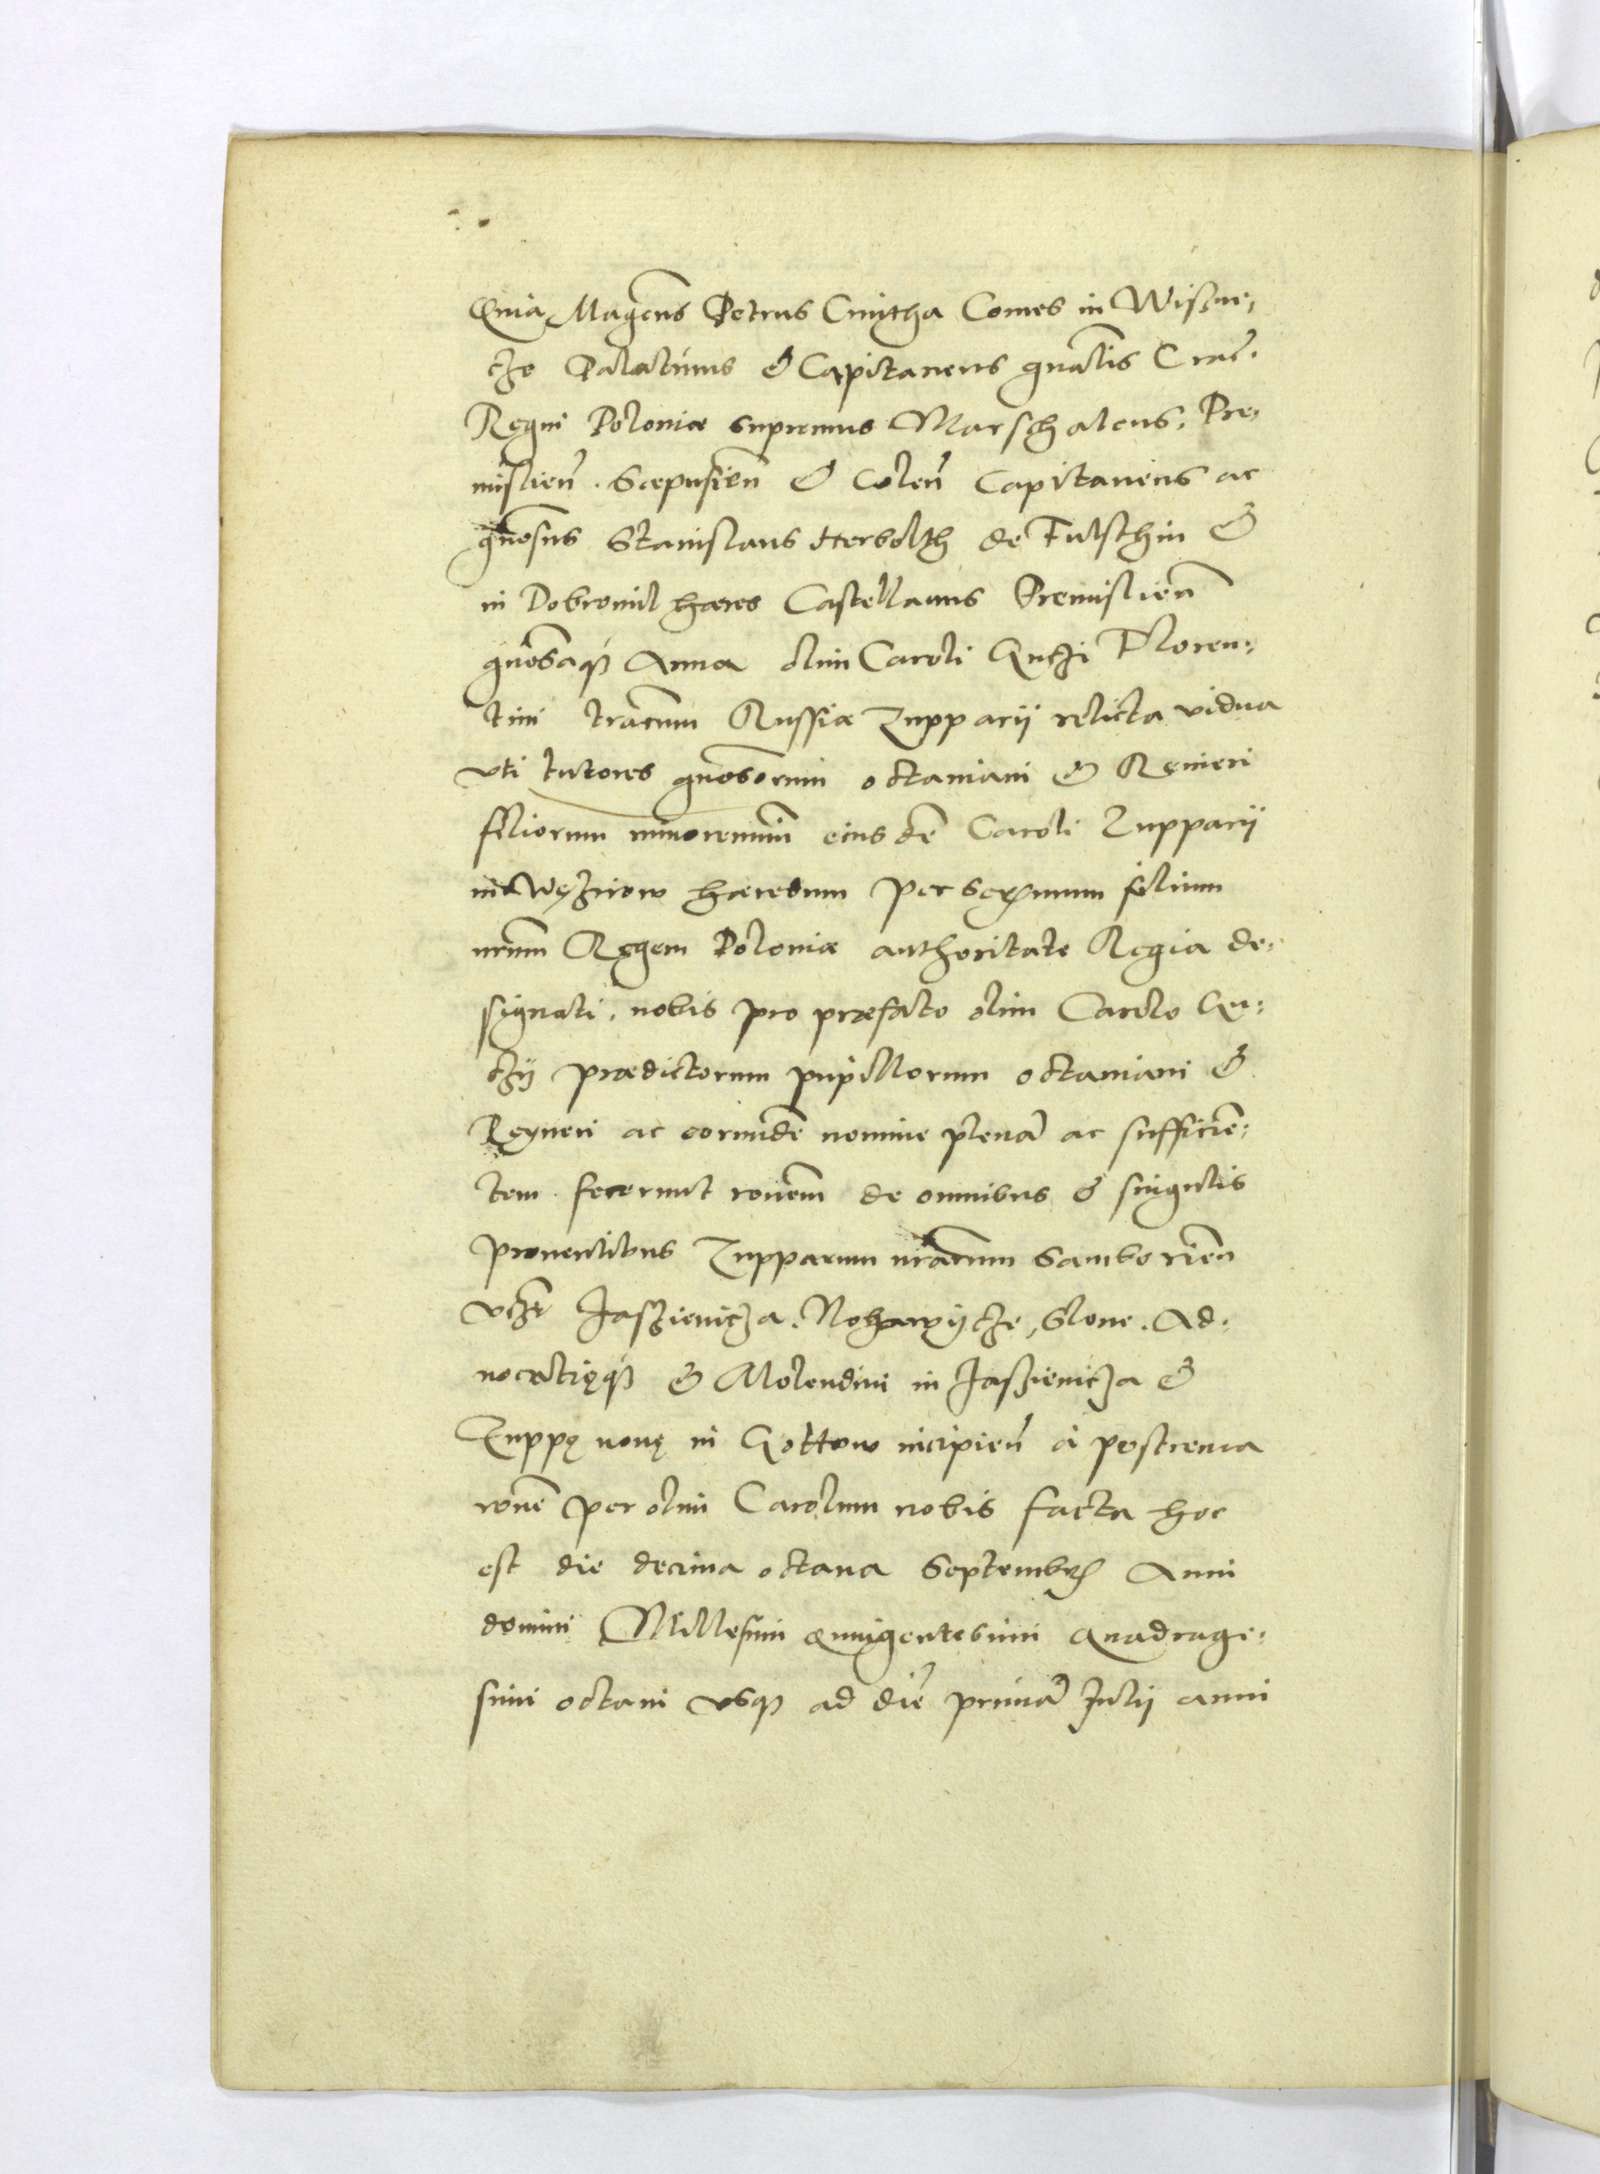 Quia Magcus Petrus Cmytha Comes in Wisnie,
cze Palatinus & Capitaneus gnalis Crac.
Regni Poloniæ supremus Marschalcus, Pre,
mislien. Scepusien & Colen Capitaneus ac
gnosus Stanislaus Herbolth de Fulschin &
in Dobromil hæres Castellanus Premislien
gnosaq Anna olim Caroli Gutzi Floren,
tini terrarum Russiæ Zupparii relicta vidua
uti tutores gnosorum Octaviani & Renieri
filiorum minorennium eiusdē Caroli Zupparii
in Wyznow hæredum per Sermum filium
nrum Regem Poloniæ authoritate Regia de,
signati, nobis pro præfato olim Carolo Gu,
tzij prædictorum pupillorum Octaviani &
Reyneri ac eorundē nomine plenā ac sufficiē,
tem fecerunt ronem de omnibus & singulis
proventibus Zupparum nrarum Samborien
vcz Jaszienicza, Nohawijcze, Slone, Ad,
vocatięq & Molendini in Jaszienicza &
Zuppę novę in Kottow incipien à postrema
ronē per olim Carolum nobis facta hoc
est die decima octava Septembris Anni
domini Millesimi Quingentesimi Quadrage,
simi octavi usq ad diē primā Julij anni